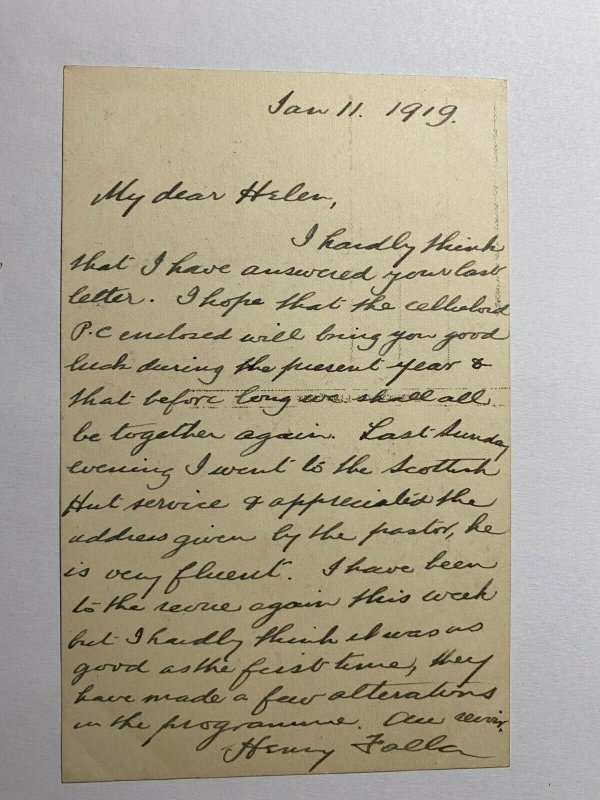 Jan 11. 1919.
My dear Helen,
I hardly think
that I have answered your last
letter. I hope that the celluloid
P.C enclosed will bring you good
luck during the present year &
that before long we shall all
be together again. Last Sunday
evening I went to the Scottish
Hut service & appreciated the
address given by the pastor, he
is very fluent. I have been
to the revue again this week
but I hardly think it was as
good as the first time, they
have made a few alterations
in the programme. Au revoir.
Henry Falla